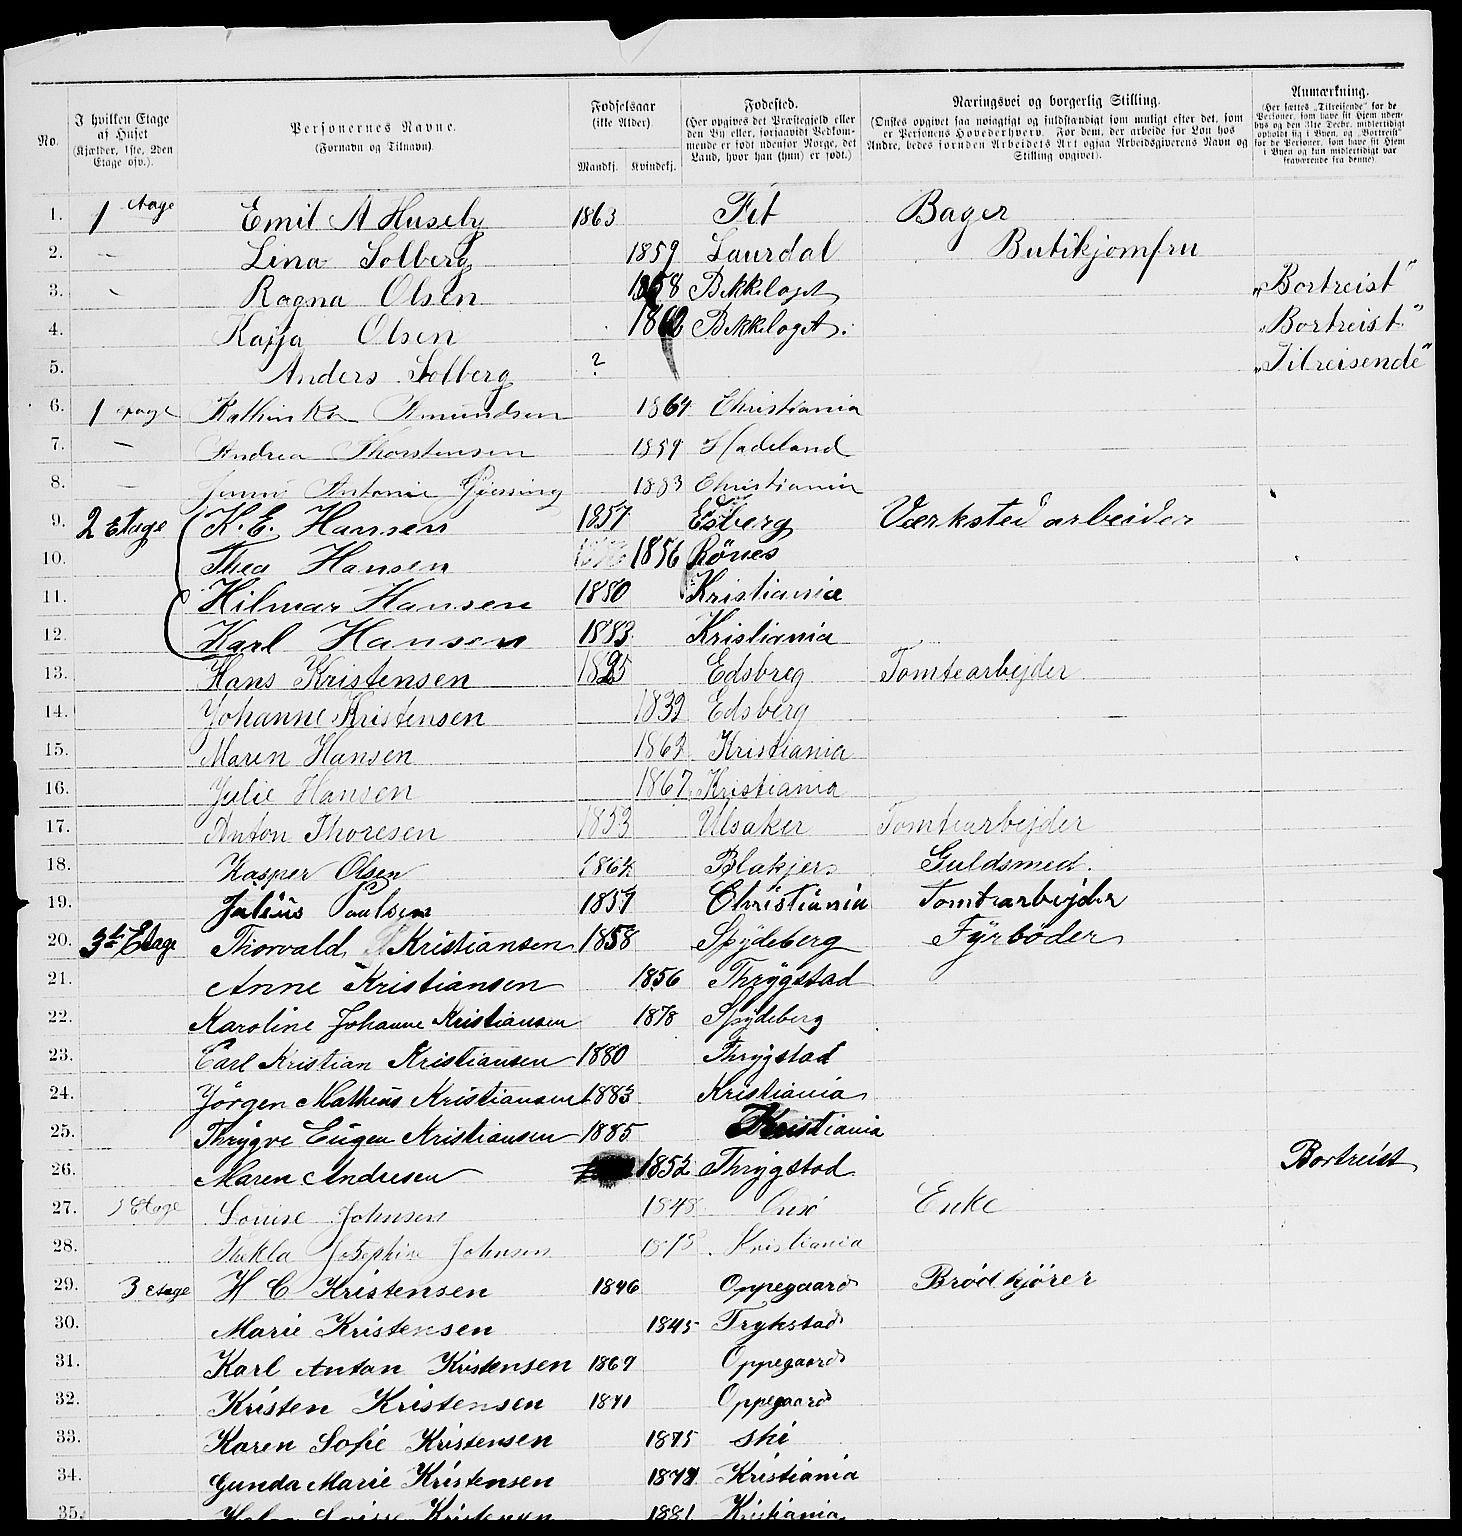 No.
I hvilken Etage af Huset (Kjælder, 1ste, 2den Etage osv.).
Personernes Navne. (Fornavn og Tilnavn)
Fødselsaar (ikke Alder). Mandkj. Kvindekj.
Fødested. (Her opgives det Præstegjeld eller den By eller, forsaavidt Vedkommende er født udenfor Norge, det Land, hvor han (hun) er født.)
Næringsvei og borgerlig Stilling. (Ønskes opgivet saa nøiagtigt og fuldstændigt som muligt efter det, som er Personens Hovederhverv. For dem, der arbeide for Løn hos Andre, bedes foruden Arbeidets Art ogsaa Arbeidsgiverens Navn og Stilling opgivet).
Anmærkning. (Her sættes „Tilreisende" for de Personer, som have sit Hjem udenbys og den 31te Decbr. midlertidigt opholdt sig i Byen, og „Bortreist" for de Personer, som have sit Hjem i Byen og kun midlertidigt var fraværende fra denne)
1. 1 Etage Emil A Huseby 1863 Fet Bager
2. - Lina Solberg 1859 Laurdal Butikjomfru
3. - Ragna Olsen 1858 Bekkelaget „Bortreist"
4. Kajja Olsen Bekkelaget. „Bortreist"
5. Anders Solberg ? „Tilreisende"
6. 1 etage Kathinka Amundsen 1864 Christiania
7. - Andrea Thorstensen 1859 Hadeland
8. - Jenni Antonie Gjessing 1883 Christiania
9. 2 Etage K. E. Hansen 1857 Esberg Værksted arbeider
10. Thea Hansen 1856 Rönes
11. Hilmar Hansen 1880 Kristiania
12. Karl Hansen 1883 Kristiania
13. Hans Kristensen 1825 Edsbreg Tomtearbejder
14. Johanne Kristensen 1832 Edsberg
15. Maren Hansen 1862 Kristiania
16. Julie Hansen 1867 Kristiania
17. Anton Thoresen 1853 Ulsaker Tomtearbejder
18. Kasper Olsen 1864 Blakjer Guldsmed.
19. Julius Paulsen 1859 Christiania Tomtearbejder
20. 3de Etage Thorvald Kristiansen 1858 Spydeberg Fyrbøder
21. Anne Kristiansen 1856 Thrygstad
22. Karoline Johanne Kristiansen 1878 Spydeberg
23. Carl Kristian Kristiansen 1880 Thrygstad
24. Jörgen Matheus Kristiansen 1883 Kristiania
25. Thrygve Eugen Kristiansen 1885 Kristiania
26. Maren Andresen 1852 Thrygstad Bortreist
27. Etage Louise Johnsen 1848 Enke
28. Thekla Josephine Johnsen 1875 Kristiania
29. 3 etage H C Kristensen 1846 Oppegaard Brødkjører
30. Marie Kristensen 1845 Trykstad
31. Karl Anton Kristensen 1869 Oppegaard
32. Kristen Kristensen 1871 Oppegaard
33. Karen Sofie Kristensen 1875 Ski
34. Gunda Marie Kristensen 1879 Kristiania
35. Kristensen 1881 Kristiania